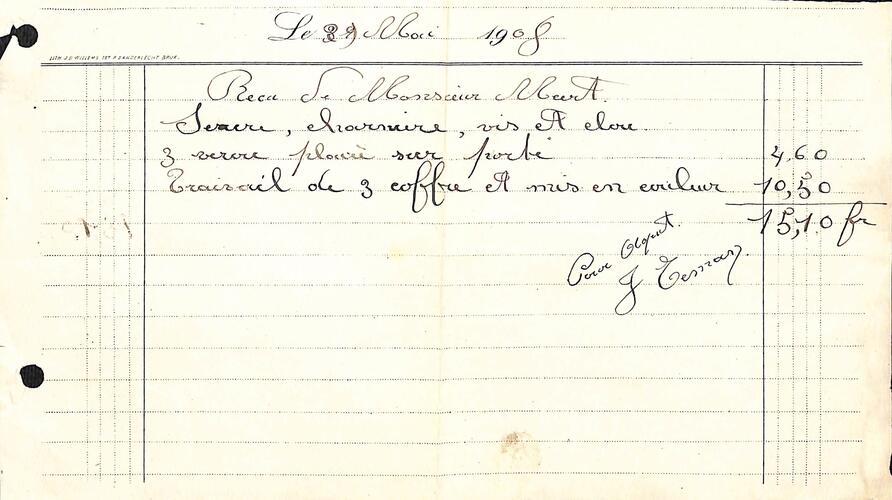 Le 29 Mai 1908
LITH. J.B. WILLEMS 157 R. D'ANDERLECHT BRUX.
Recu de Monsieur Maert.
Serure, charniere, vis et clou
3 verou placé sur porte 4,60
Travail de 3 coffre et mis en couleur 10,50
15,10 fr
Pour Aquit.
J